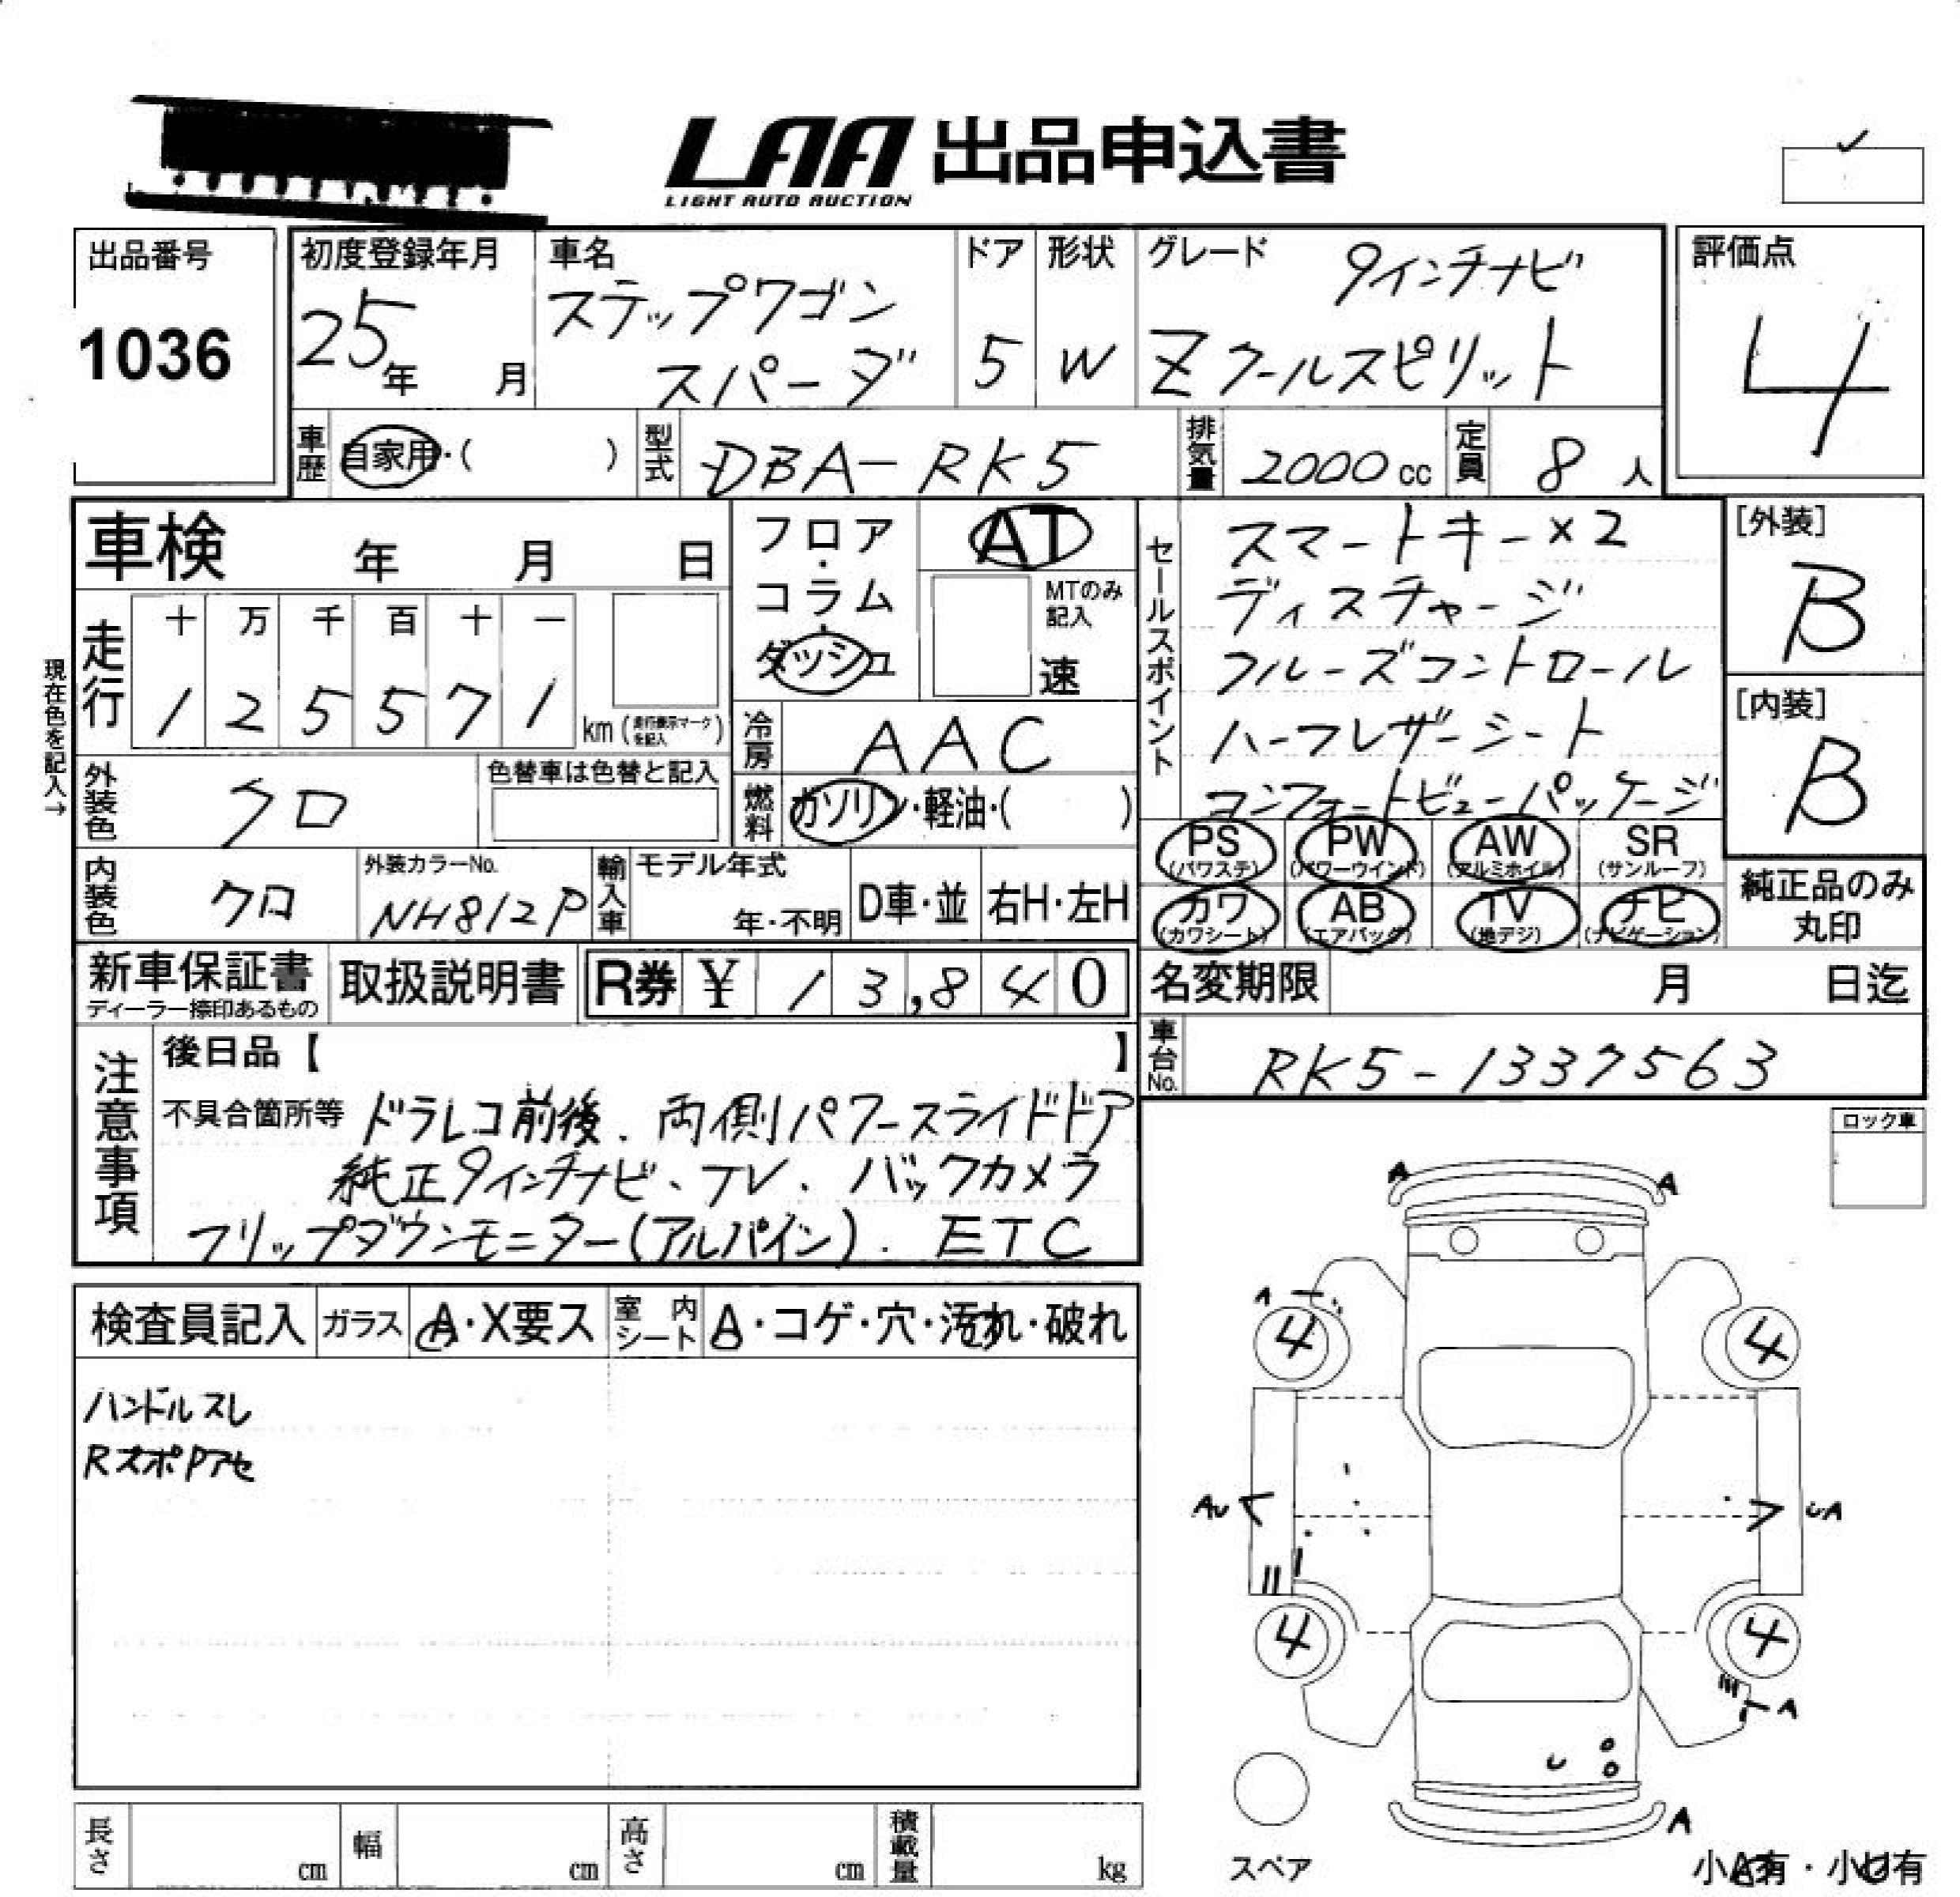 LAA 出品申込書
LIGHT AUTO AUCTION
出品番号
1036
初度登録年月
25年 月
車名
ステップワゴン
スパーダ
ドア
5
形状
W
グレード
9インチナビ
Zクールスピリット
評価点
4
車歴 自家用・( )
型式 DBA-RK5
排気量 2000cc
定員 8人
車検 年 月 日
現在色を記入→
走行
十 万 千 百 十 一
1 2 5 5 7 1 km(走行表示マークを記入)
フロア・コラム・ダッシュ
AT
MTのみ記入
速
冷房 AAC
燃料 ガソリン・軽油・( )
外装色 クロ
色替車は色替と記入
内装色 クロ
外装カラーNo.
NH812P
輸入車
モデル年式
年・不明
D車・並
右H・左H
セールスポイント
スマートキー×2
ディスチャージ
クルーズコントロール
ハーフレザーシート
コンフォートビューパッケージ
[外装]
B
[内装]
B
PS (パワステ)
PW (パワーウインド)
AW (アルミホイル)
SR (サンルーフ)
カワ (カワシート)
AB (エアバッグ)
TV (地デジ)
ナビ (ナビゲーション)
純正品のみ
丸印
新車保証書
ディーラー捺印あるもの
取扱説明書
R券 ¥ 13,840
名変期限 月 日迄
車台No. RK5-1337563
注意事項
後日品【 】
不具合箇所等 ドラレコ前後、両側パワースライドドア
純正9インチナビ、TV、バックカメラ
フリップダウンモニター(アルパイン)、ETC
ロック車
検査員記入
ガラス A・X要ス
室内シート A・コゲ・穴・汚れ・破れ
ハンドルスレ
RスポPアセ
A A
A
4 4
AU UA
4 4
A
U
A
スペア
小A有・小U有
長さ cm
幅 cm
高さ cm
積載量 kg